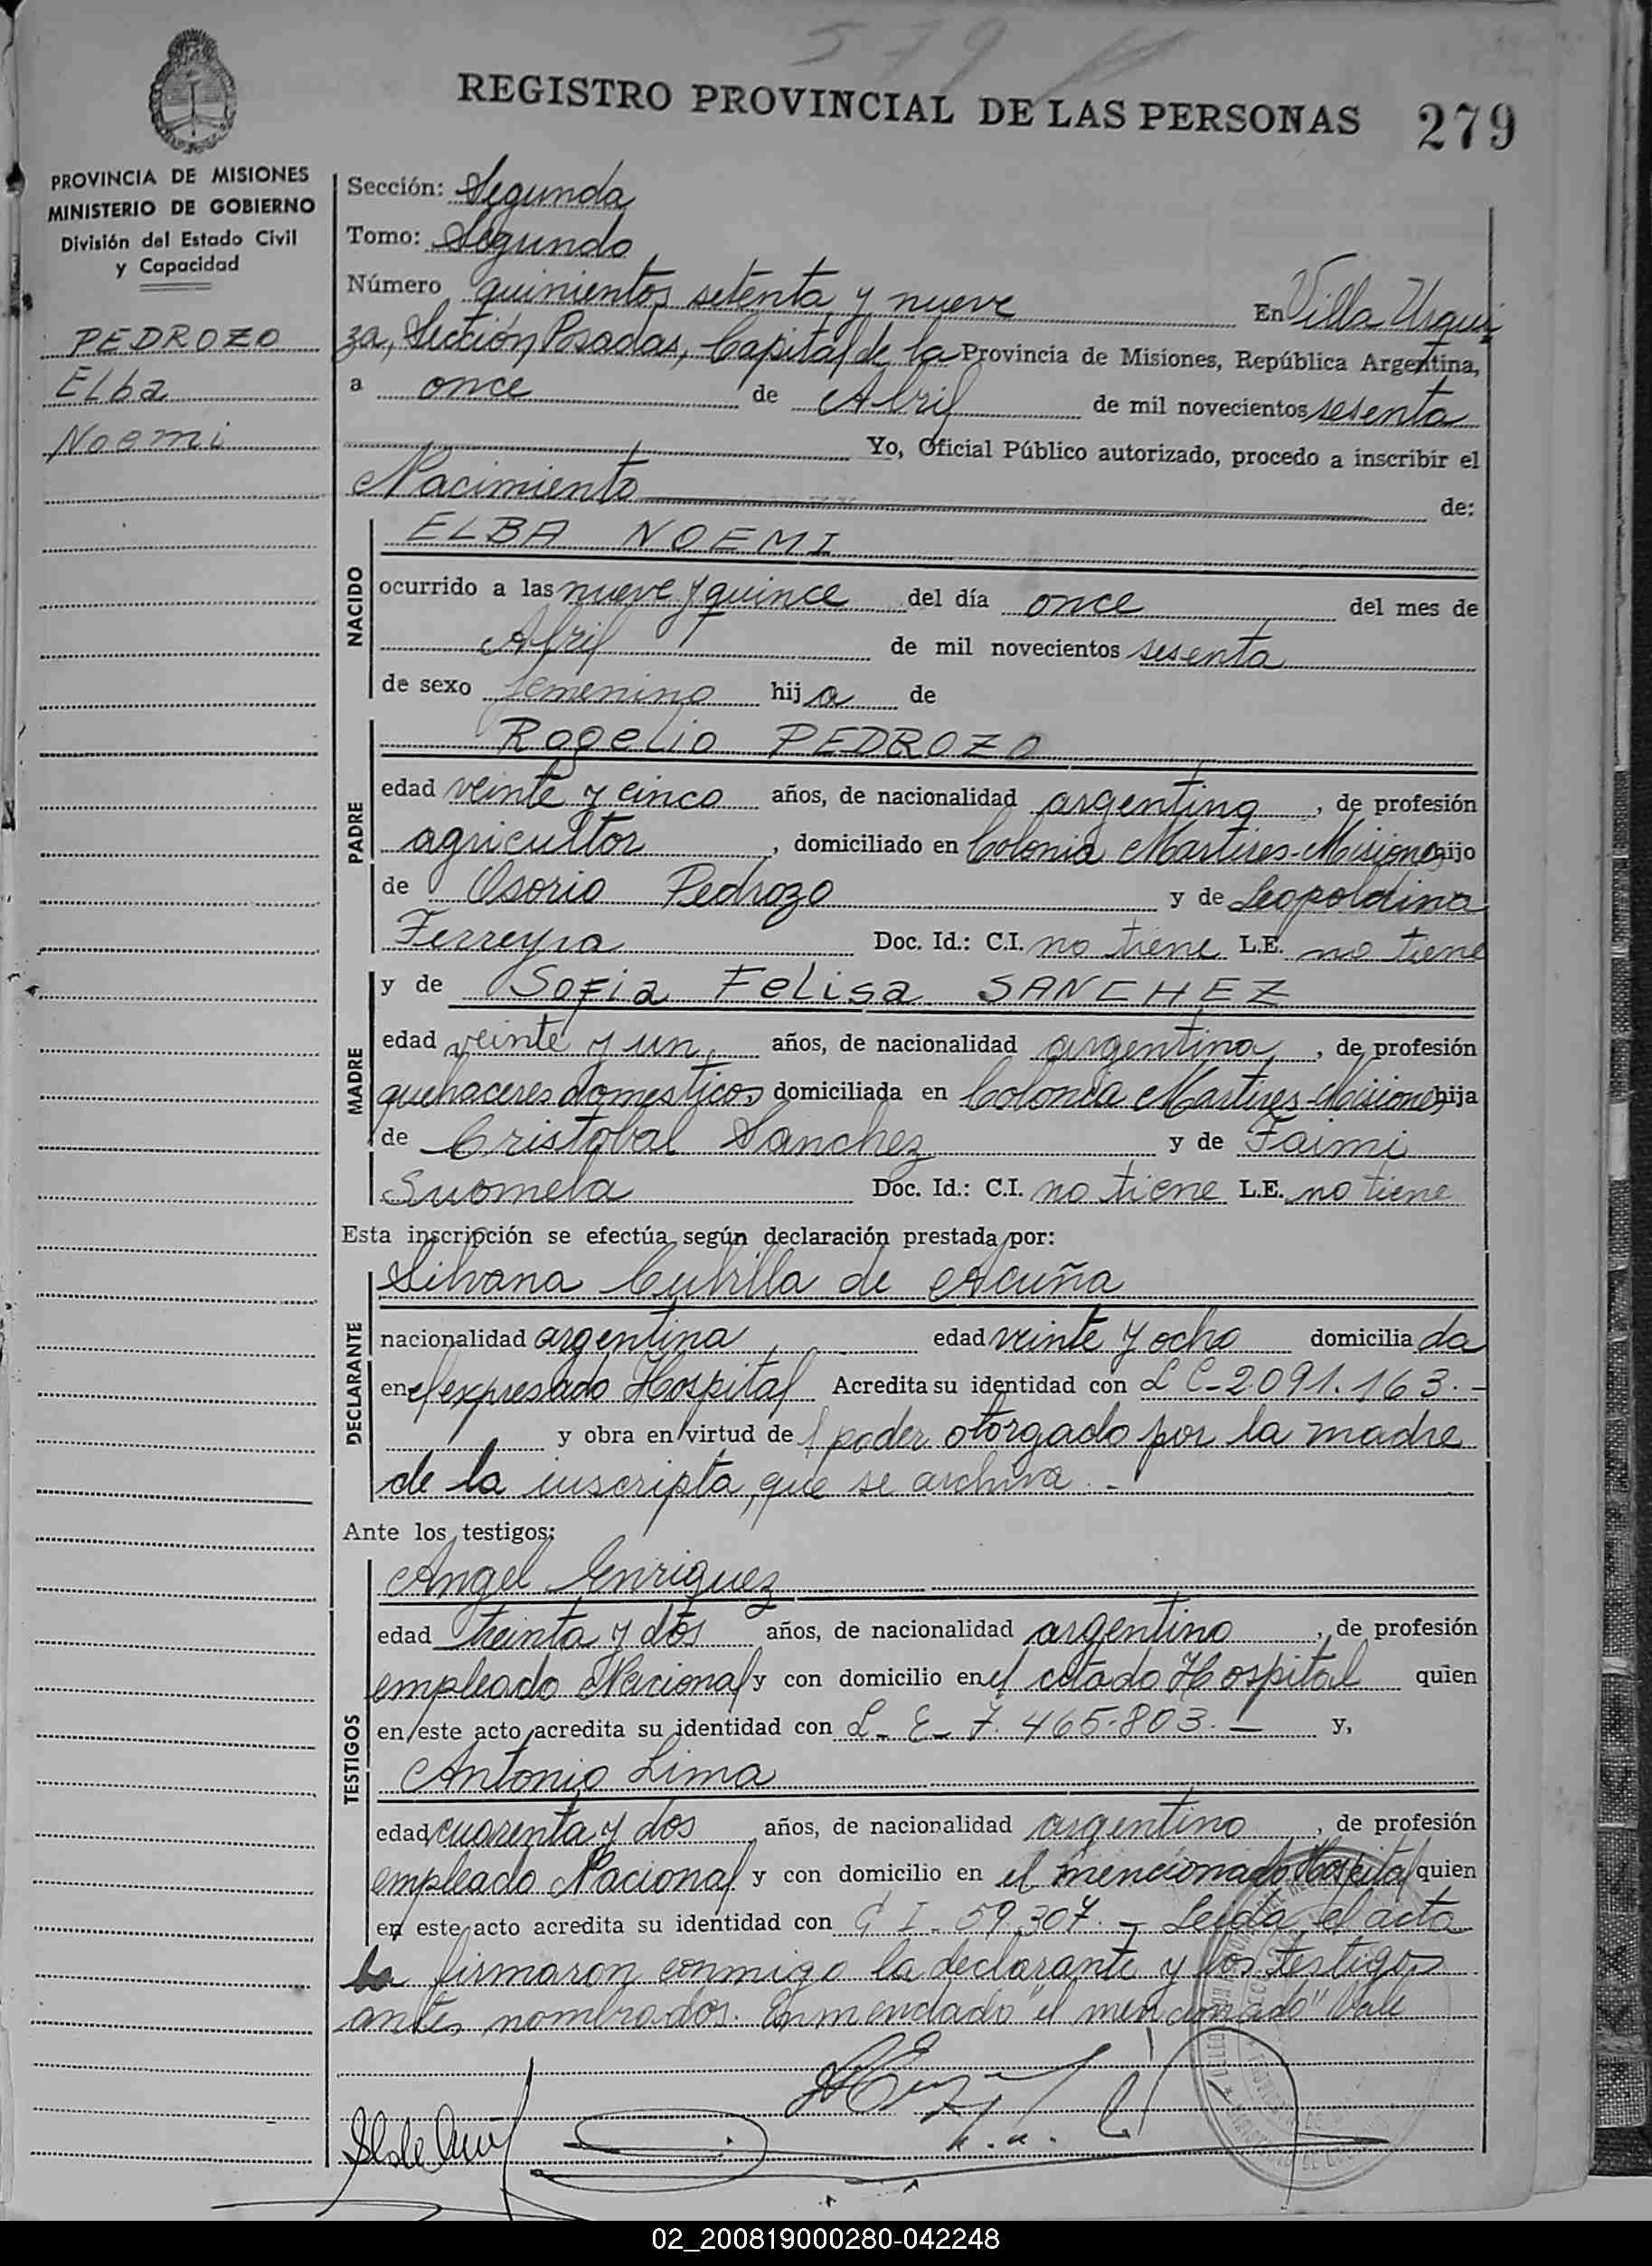 579
REGISTRO PROVINCIAL DE LAS PERSONAS 279
PROVINCIA DE MISIONES
MINISTERIO DE GOBIERNO
División del Estado Civil
y Capacidad
PEDROZO
Elba
Noemi
Sección: Segunda
Tomo: Segundo
Número quinientos setenta y nueve En Villa Urqui
za, Sección Posadas, Capital de la Provincia de Misiones, República Argentina,
a once de Abril de mil novecientos sesenta
Yo, Oficial Público autorizado, procedo a inscribir el
Nacimiento de:
NACIDO
ELBA NOEMI
ocurrido a las nueve y quince del día once del mes de
Abril de mil novecientos sesenta
de sexo femenino hija de
PADRE
Rogelio PEDROZO
edad veinte y cinco años, de nacionalidad argentina, de profesión
agricultor, domiciliado en Colonia Martires-Misiones hijo
de Osorio Pedrozo y de Leopoldina
Ferreyra Doc. Id.: C.I. no tiene L.E. no tiene
MADRE
y de Sofia Felisa SANCHEZ
edad veinte y un años, de nacionalidad argentina, de profesión
quehaceres domesticos domiciliada en Colonia Martires-Misiones hija
de Cristobal Sanchez y de Faimi
Suomela Doc. Id.: C.I. no tiene L.E. no tiene
Esta inscripción se efectúa según declaración prestada por:
DECLARANTE
Silvana Cubilla de Acuña
nacionalidad argentina edad veinte y ocho domiciliada
en el expresado Hospital Acredita su identidad con L C-2091.163.-
y obra en virtud de poder otorgado por la madre
de la inscripta, que se archiva.-
Ante los testigos:
TESTIGOS
Angel Enriquez
edad treinta y dos años, de nacionalidad argentino, de profesión
empleado Nacional y con domicilio en el citado Hospital quien
en este acto acredita su identidad con L-E-7.465.803.- y,
Antonio Lima
edad cuarenta y dos años, de nacionalidad argentino, de profesión
empleado Nacional y con domicilio en el mencionado Hospital quien
en este acto acredita su identidad con C I-59.307.- Leida el acta
la firmaron conmigo la declarante y los testigos
antes nombrados. Enmendado "el mencionado" Vale
02_200819000280-042248